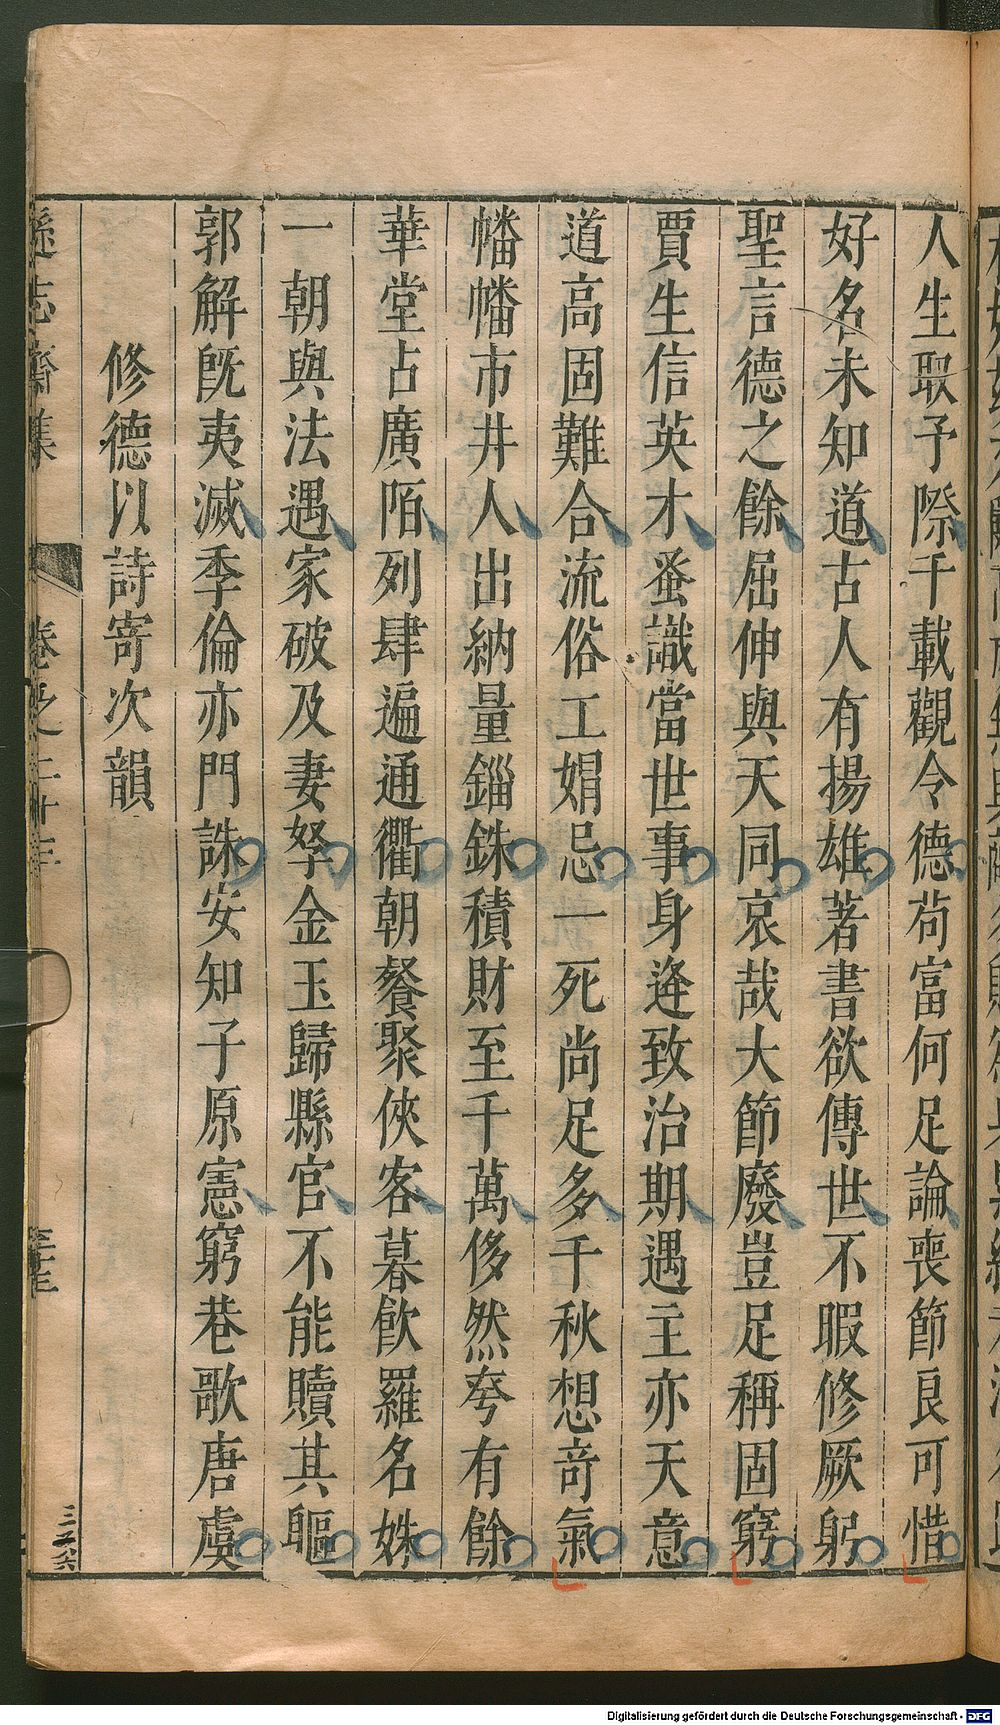 人生取予際千載觀令德苟富何足論喪節良可惜
好名未知道古人有揚雄著書欲傳世不暇修厥躬
聖言德之餘屈伸與天同哀哉大節廢豈足稱固窮
賈生信英才蚤識當世事身逢致治期遇主亦天意
道高固難合流俗工娟忌一死尚足多千秋想奇氣
幡幡市井人出納量錙銖積財至千萬侈然夸有餘
華堂占廣陌列肆遍通衢朝餐聚俠客暮飲羅名姝
一朝與法遇家破及妻孥金玉歸縣官不能贖其軀
郭解既夷滅季倫亦門誅安知子原憲窮巷歌唐虞
修德以詩寄次韻
遜志齋集 卷之二十三
Digitalisierung gefördert durch die Deutsche Forschungsgemeinschaft - DFG